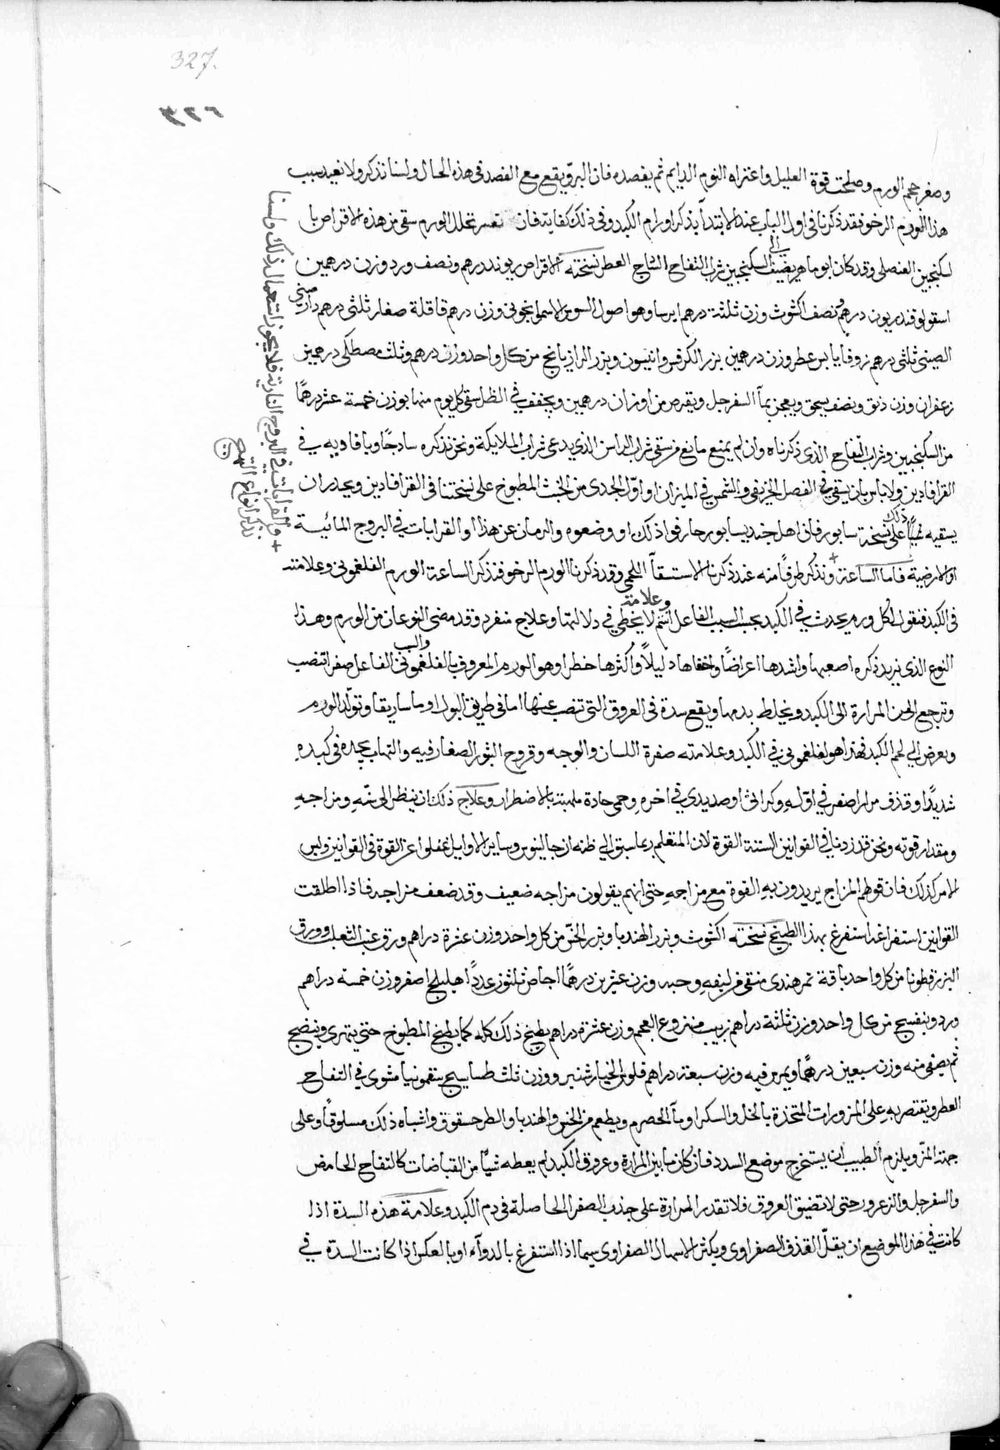 327.
٣٢٦
وصغر حجم الورم وصلحت قوة العليل واعتراه النوم الدايم ثم يفصده فان البرؤ يقع مع الفصد في هذه الحال ولسنا نذكر ولا نعيد سبب
هذا الورم الرخو فقد ذكرنا في اول الباب عند الابتداء بذكر اورام الكبد وفي ذلك كفاية فان تعسر تحلل الورم سقي من هذه الاقراص با
لسكنجبين العنصلى وقد كان ابو ماهر يضيف الى السكنجبين شراب التفاح الشاج العطر نسخته الاقراص ريوند درهم ونصف ورد وزن درهمين
اسقولوقندريون درهم ونصف اكثوث وزن ثلثة درهم ايرسا وهو اصول السوسن الاسمانجوني وزن درهم قاقلة صغار ثلثى درهم دارصيني
الصينى ثلثى درهم زوفا يابس عطر وزن درهمين بزر الكرفس وانيسون وبزر الرازيانج من كل واحد وزن درهم وثلث مصطكى درهمين
زعفران وزن دنق ونصف يسحق ويعجن بمآ السفرجل ويقرص من اوزان درهمين ويجفف في الظل سقى كل يوم منها بوزن خمسة عشر درهمًا
من السكنجبين وشراب التفاح الذى ذكرناه وان لم يمنع مانع من سقى شراب الراس الذى يدعى شراب الملايكة ونحن نذكره ساذجًا وبافاويه في
القرافادين ولا باس بان يسقى في الفصل الخريفى والشمس في الميزان او اول الجدى من الخبث المطبوخ على نسختنا في القرافادين ويحذر ان
يسقيه شيئًا على نسخة ذلك سابور فان اهل جنديسابور جارفوا ذلك او وضعوه والزمان عن هذا او القرابات في البروج المائية
او الارضية فاما الساعة + ونذكر طرفًا منه عند ذكرنا الاستسقآ اللحمى وقد ذكرنا الورم الرخو فنذكر الساعة الورم الفلغمونى وعلامته
في الكبد فنقول لكل ورم يحدث في الكبد بحسب السبب الفاعل اسم وعلامة لا يخطى في دلالتها وعلاج منفرد وقد مضى النوعان من الورم وهذا
النوع الذى نريد ذكره اصعبها واشدها اعراضًا واخفاها دليلاً واكثرها خطرا وهو الورم المعروف بالفلغمونى والسبب الفاعل صفرا تنصب
وترجع الى المرارة الى الكبد ويخلط بدمها ويقع سدة في العروق التى تنصب عنها اما في طريق البول او ماساريقا وتولد الورم
ويعرض الى لحم الكبد فهذا هو الفلغمونى في الكبد وعلامته صفرة اللسان والوجه وقروح البثور الصغار فيه والتهاب يجده في كبده
شديدًا وقذف مرار اصفر في اوله وكراثى او صديدى في اخره وحمى حادة ملهبة بالاضطرار وعلاج ذلك ان ينظر الى سنه ومزاجه
ومقدار قوته ونحن قد زدنا في القوانين الستة القوة لان المتعلم ربما سبق الى ظنه ان جالينوس وساير الاوايل غفلوا عن القوة في القوانين وليس
الامر كذلك فان قولهم المزاج يريدون به القوة مع مزاجه حتى انهم يقولون مزاجه ضعيف وقد ضعف مزاجه فاذا اطلقت
القوانين استفراغه استفرغ بهذا الطبيخ نسخته اكثوث وبزر الهندبا وبزر الخس من كل واحد وزن عشرة دراهم ورق عنب الثعلب وورق
البزرقطونا من كل واحد باقة تمر هندى منقى من ليفه وحبه وزن عشرين درهمًا اجاص ثلثون عددًا اهليلج اصفر وزن خمسة دراهم
ورد وبنفسج من كل واحد وزن ثلثة دراهم زبيب منزوع العجم وزن عشرة دراهم يطبخ ذلك كله كما يطبخ المطبوخ حتى يتهرى وينضج
ثم يصفى منه وزن سبعين درهمًا ويمرس فيه وزن سبعة دراهم فلوس الخيارشنبر ووزن ثلث طساسيج سقمونيا مشوى في التفاح
العطر ويقتصر به على المزورات المتخذة بالخل والسكر او مآ الحصرم ويطعم من الخس والهندبا والطرحشقوق واشباه ذلك مسلوقًا وعلى
جهته المز ويلزم الطبيب ان يستخرج موضع السدد فان كان ما بين المرارة وعروق الكبد لم يعطه شيئًا من القباضات كالتفاح الحامض
والسفرجل والزعرور حتى لا تضيق العروق فلا تقدر المرارة على جذب الصفرا الحاصلة في دم الكبد وعلامة هذه السدة اذا
كانت في هذا الموضع ان يقل القذف الصفراوى ويكثر الاسهال الصفراوى سيما اذا استفرغ بالدوآء او بالعكس اذا كانت السدة في
+ والقرابات في البروج النارية فلا يجوز استعمال ذلك ولسنا
نذكر انواع التهيج